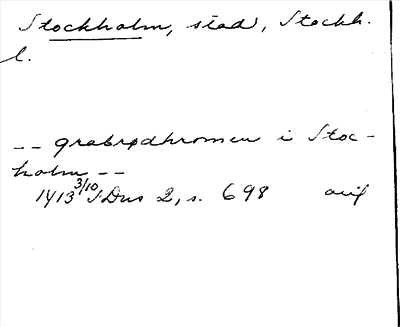 Stockholm, stad, Stockh.
l.
-- grabrødhromen i Stoc-
holm --
1413 3/10 SDns 2, s. 698 avif